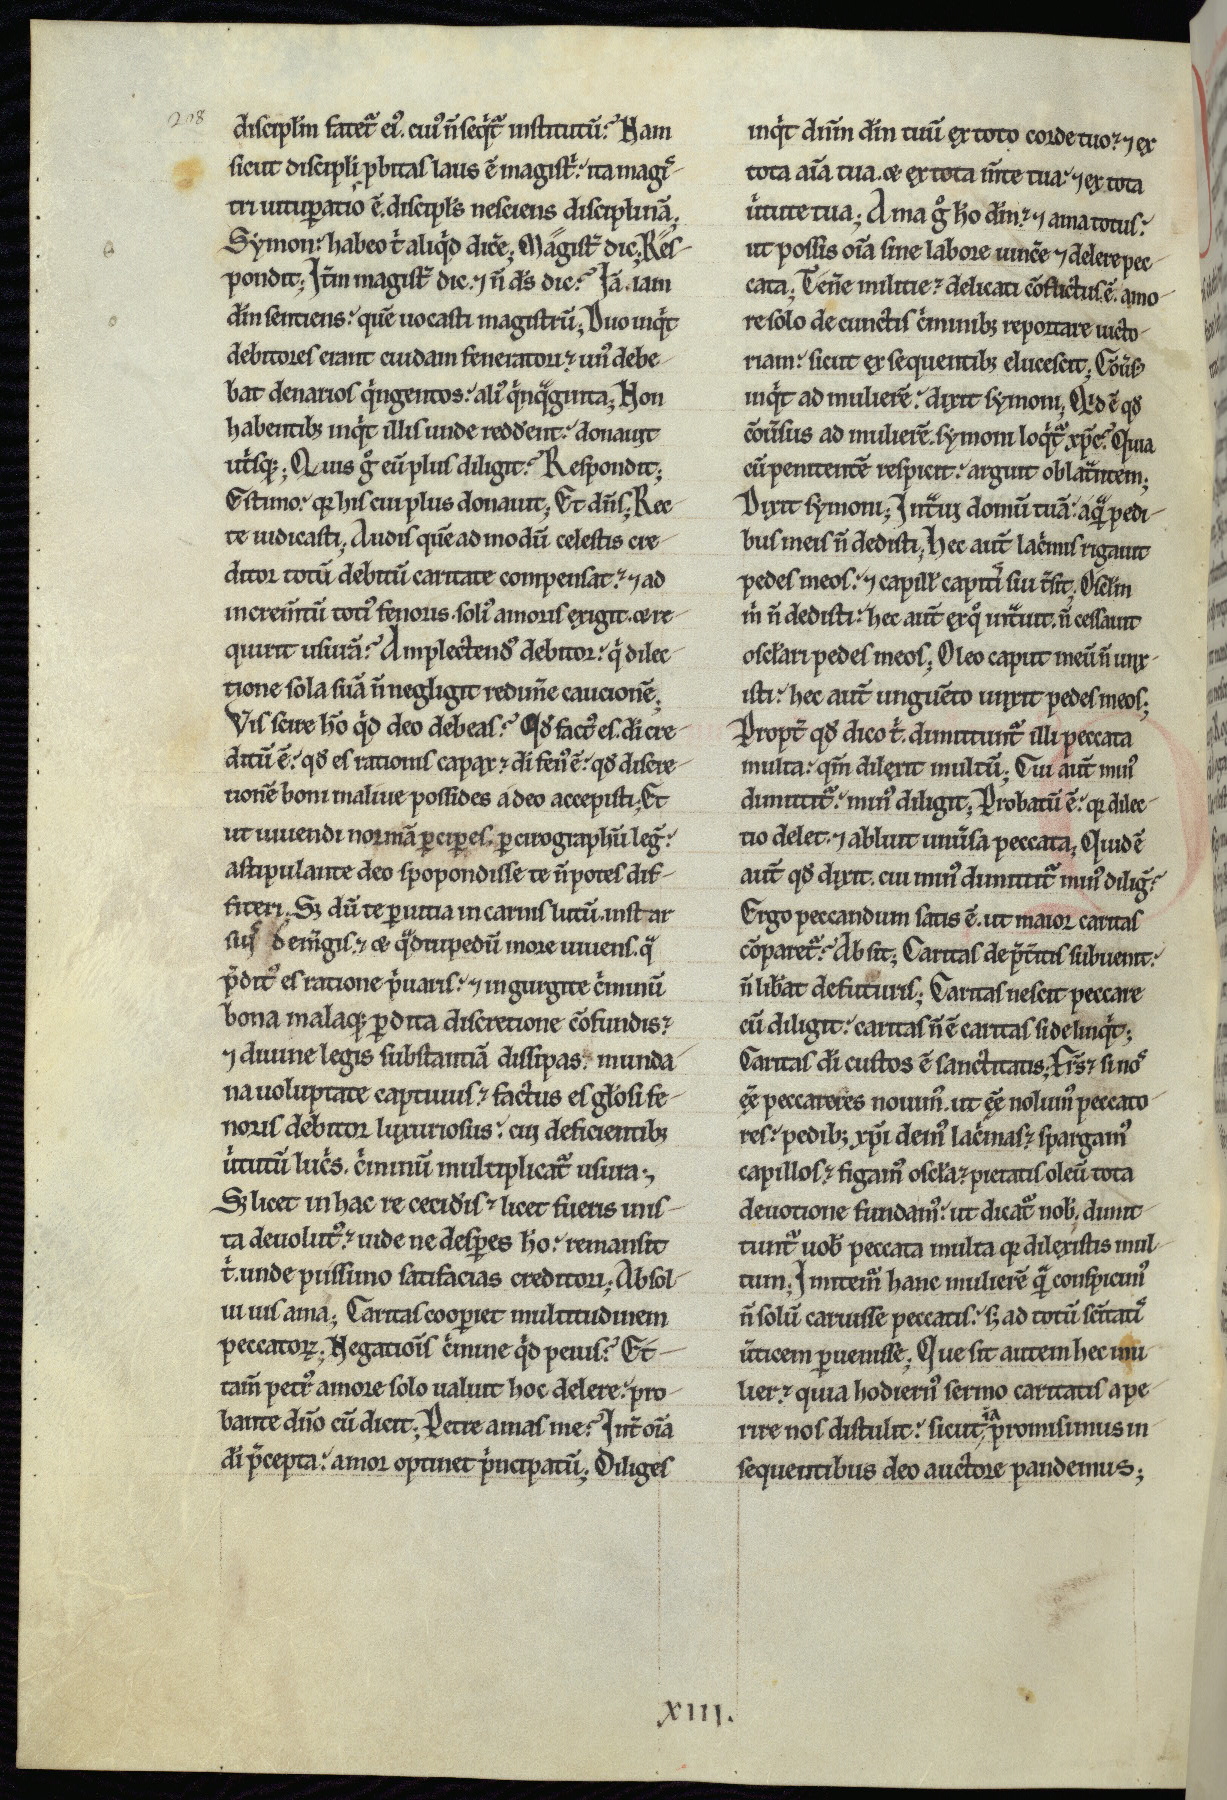 208
disciplīn fatet᷑ eꝰ. cuiꝰ n̄ seq̇t᷑ institutū? Nam
sicut discipli ꝓbitas laus ē magist̃: ita magi-
tri uituꝑatio ē. discipl̄s nesciens disciplinā;
Symon: habeo t̄ aliq̇d dic̄e; Magist̃ dic; Res-
pondit; It̃m magist̃ dic. ⁊ n̄ d̄s dic? Iā iam
dīn sentiens: quē uocasti magistrū; Duo inq̇t
debitores erant cuidam feneratori: unꝰ debe-
bat denarios q̇ngentos: aliꝰ q̇nq̃ginta; Non
habentibꝫ inq̇t illis unde redd̄ent: donauit
ut̃sqꝫ; Quis g̊ eū plus diligit? Respondit;
Estimo: qꝛ his cui plus donauit; Et dn̄s; Rec-
te iudicasti; Audis quē ad modū celestis cre-
ditor totū debitū caritate compensat: ⁊ ad
increm̄tū totiꝰ fenoris. soliꝰ amoris exigit. & re-
quirit usurā? Amplectendꝰ debitor: q̇ dilec-
tione sola suā n̄ negligit redim̄e caucionē;
Vis scire h̄o q̇d deo debeas? Qd̄ fact᷒ es. di cre-
ditū ē: qd̄ es rationis capax: di fenꝰ ē: qd̄ discre-
tionē boni maliue possides a deo accepisti; Et
ut uiuendi normā ꝑciꝑes. ꝑ cirographū leg̃:
astipulante deo spopondisse te n̄ potes dif-
fiteri; Sꝫ dū te ꝑ uitia in carnis lutū. inst ar
suis demgis: & q̃drupedū more uiuens. q̃
p̄dit᷒ es ratione ṗuaris: ⁊ in gurgite c̄minū
bona malaqꝫ ꝑdita discretione cōfundis:
⁊ diuine legis substantiā dissipas: munda-
na uoluptate captiuus: factus es gl̄osi fe-
noris debitor luxuriosus: cuiꝫ deficientibꝫ
ūtutū luc̄s. c̄minū multiplicat᷑ usura;
Sꝫ licet in hac re cecid̄is: licet fueris uis-
ta deuolut᷒: uide ne desꝑes h̄o: remansit
t̄. unde piissimo satisfacias creditori; Absol-
ui uis ama; Caritas cooꝑiet multitudinem
peccatoꝝ; Negatiōis c̄mine q̇d peius? Et-
tam̄ petrꝰ amore solo ualuit hoc delere: pro-
bante dn̄o cū dicit; Petre amas me? Int̃ oīa
di p̄cepta: amor optinet ṗncipatū; Diliges
inq̇t dn̄m dīn tuū ex toto corde tuo: ⁊ ex
tota aīa tua. & ex tota m̄te tua: ⁊ ex tota
ūtute tua; Ama g̊ h̄o dīn: ⁊ ama totus:
ut possis oīa sine labore uinc̄e ⁊ delere pec-
cata; Ten̄e militie: delicati cōflictus ē. amo-
re solo de cunctis c̄minibꝫ reportare uicto-
riam: sicut ex sequentibꝫ elucescit; Cōūsꝰ
inq̇t ad mulierē: dixit symoni; Qid ē qd̄
cōūsus ad mulierē. symoni loq̇t᷑ xp̄c? Quia
cū penitentē respicit: arguit oblat̃ntem;
Dixit symoni; Int̃ui domū tuā: aq̃ pedi-
bus meis n̄ dedisti; Hec aut̄ lac̄mis rigauit
pedes meos: ⁊ capill̄ capitis sui t̃sit; Oscl̄m
m̄ n̄ dedisti: hec aut̄ ex q̊ int̃uit. n̄ cessauit
oscl̄ari pedes meos; Oleo caput meū n̄ unx-
isti: hec aut̄ unguēto unxit pedes meos;
Propt̃ qd̄ dico t̄. dimittunt᷑ illi peccata
multa: qm̄ dilexit multū; Cui aut̄ minꝰ
dimittit᷑: minꝰ diligit; Probatū ē: qꝛ dilec-
tio delet. ⁊ abluit uniūsa peccata; Quid ē
aut̄ qd̄ dixit. cui minꝰ dimittit᷑ minꝰ dilig̃?
Ergo peccandum satis ē. ut maior caritas
cōparet᷑? Absit; Caritas de p̄t̃itis subuenit:
n̄ lib̄at de futuris; Caritas nescit peccare
cū diligit: caritas n̄ ē caritas si delinq̇t;
Caritas di custos ē sanctitatis; Fr̄s: si noꝰ
ēe peccatores nouimꝰ. ut ēe nolumꝰ peccato-
res: pedibꝫ xp̄i demꝰ lac̄mas: spargamꝰ
capillos: figamꝰ oscl̄a: pietatis oleū tota
deuotione fundamꝰ: ut dicat᷑ nob̄. dimit-
tunt᷑ uob̄ peccata multa qꝛ dilexistis mul-
tum; Imitem᷑ hanc mulierē q̃ conspicimꝰ
n̄ solū caruisse peccatis: sꝫ ad totū sc̄itatis
ūticem ꝑuenisse; Que sit autem hec mu-
lier: quia hodiernꝰ sermo caritatis ape-
rire nos distulit: sicut iā promisimus in
sequentibus deo auctore pandemus;
XIII.